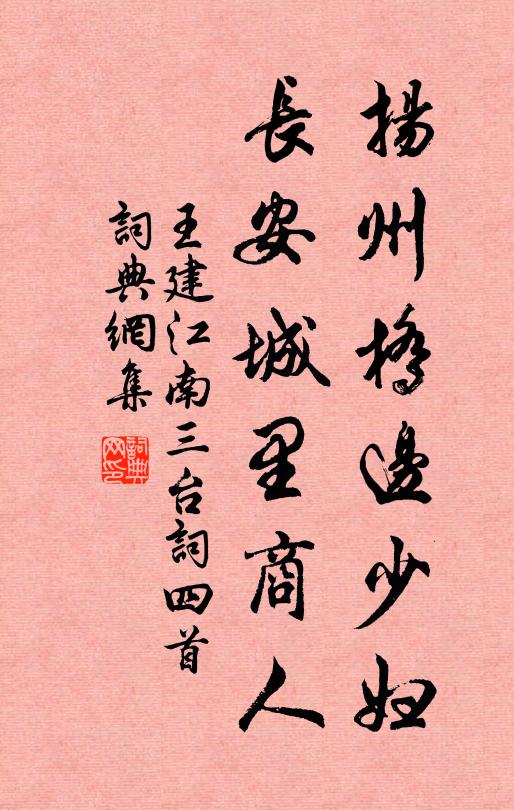 揚州橋邊少妇
長安城里商人
王建江南三台詞四首
詞典網集
詞典
网印